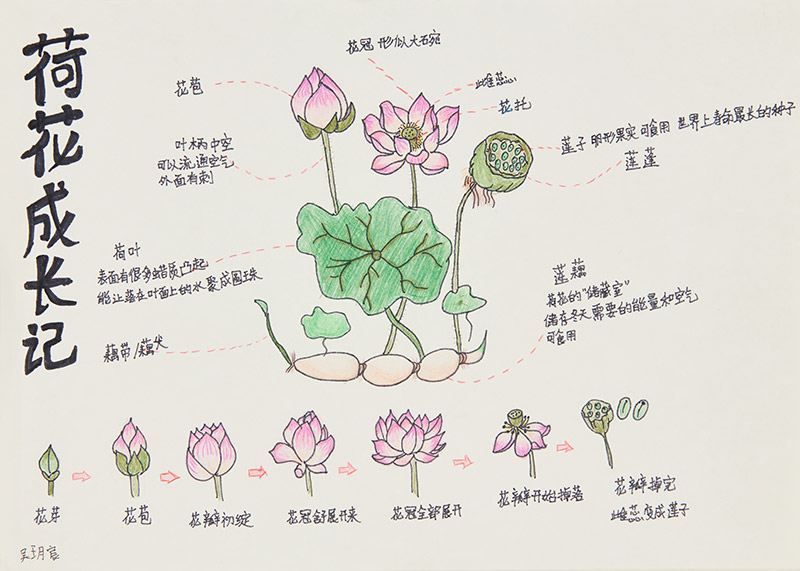 荷花成长记
花冠 形似大碗
花苞
雌蕊
花托
叶柄中空
可以流通空气
外面有刺
莲子 卵形果实 可食用 世界上寿命最长的种子
莲蓬
荷叶
表面有很多蜡质凸起
能让落在叶面上的水聚成圆珠
莲藕
荷花的“储藏室”
储存冬天需要的能量和空气
可食用
藕带/藕尖
花芽
花苞
花瓣初绽
花冠舒展开来
花冠全部展开
花瓣开始掉落
花瓣掉完
雌蕊变成莲子